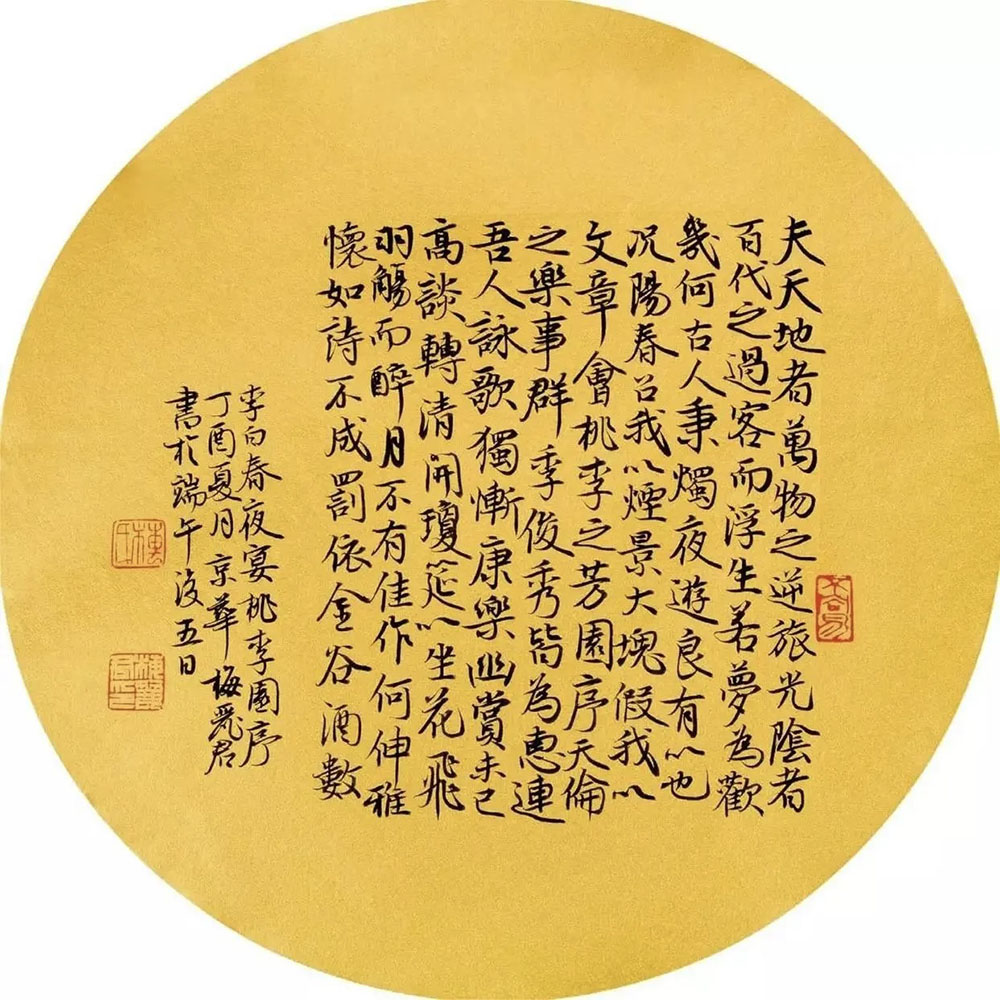 夫天地者萬物之逆旅光陰者
百代之過客而浮生若夢為歡
幾何古人秉燭夜遊良有以也
況陽春召我以煙景大塊假我以
文章會桃李之芳園序天倫
之樂事群季俊秀皆為惠連
吾人詠歌獨慚康樂幽賞未已
高談轉清開瓊筵以坐花飛
羽觴而醉月不有佳作何伸雅
懷如詩不成罰依金谷酒數
李白春夜宴桃李園序
丁酉夏月京華梅君
書於端午後五日